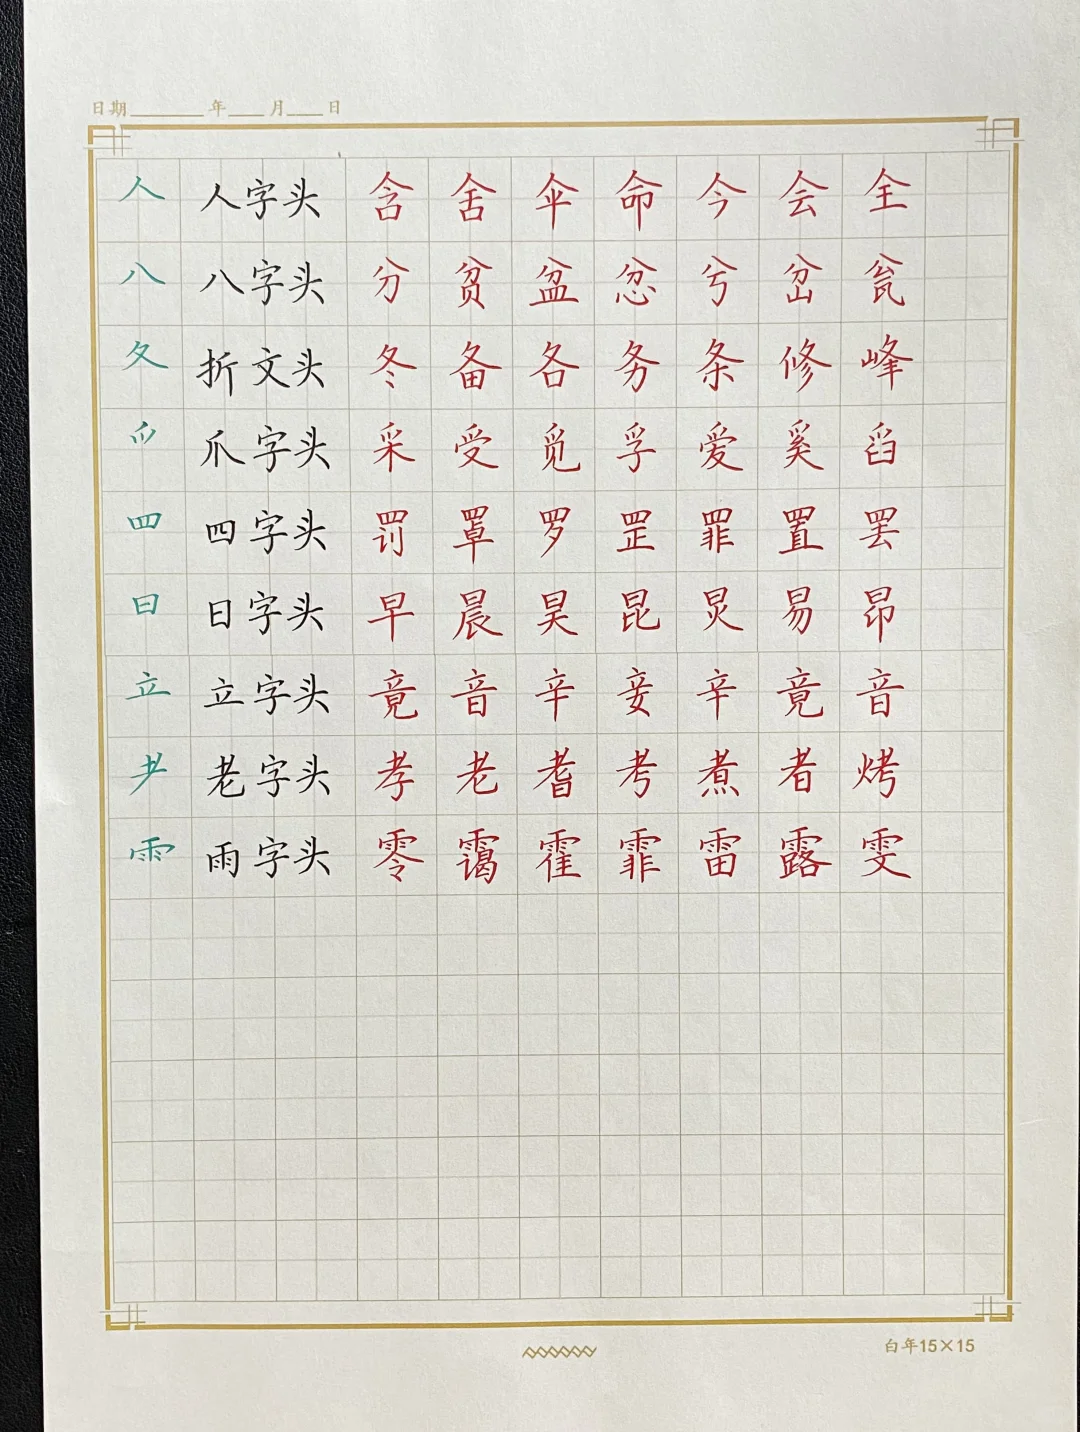 日期 年 月 日
人 人字头 含 舍 伞 命 今 会 全
八 八字头 分 贫 盆 忿 兮 岔 瓮
夂 折文头 冬 备 各 务 条 修 峰
爫 爪字头 采 受 觅 孚 爱 奚 舀
罒 四字头 罚 罩 罗 罡 罪 置 罢
日 日字头 早 晨 昊 昆 炅 易 昂
立 立字头 竟 音 辛 妾 辛 竟 音
耂 老字头 孝 老 耆 考 煮 者 烤
⻗ 雨字头 零 霭 霍 霏 雷 露 雯
白年15×15